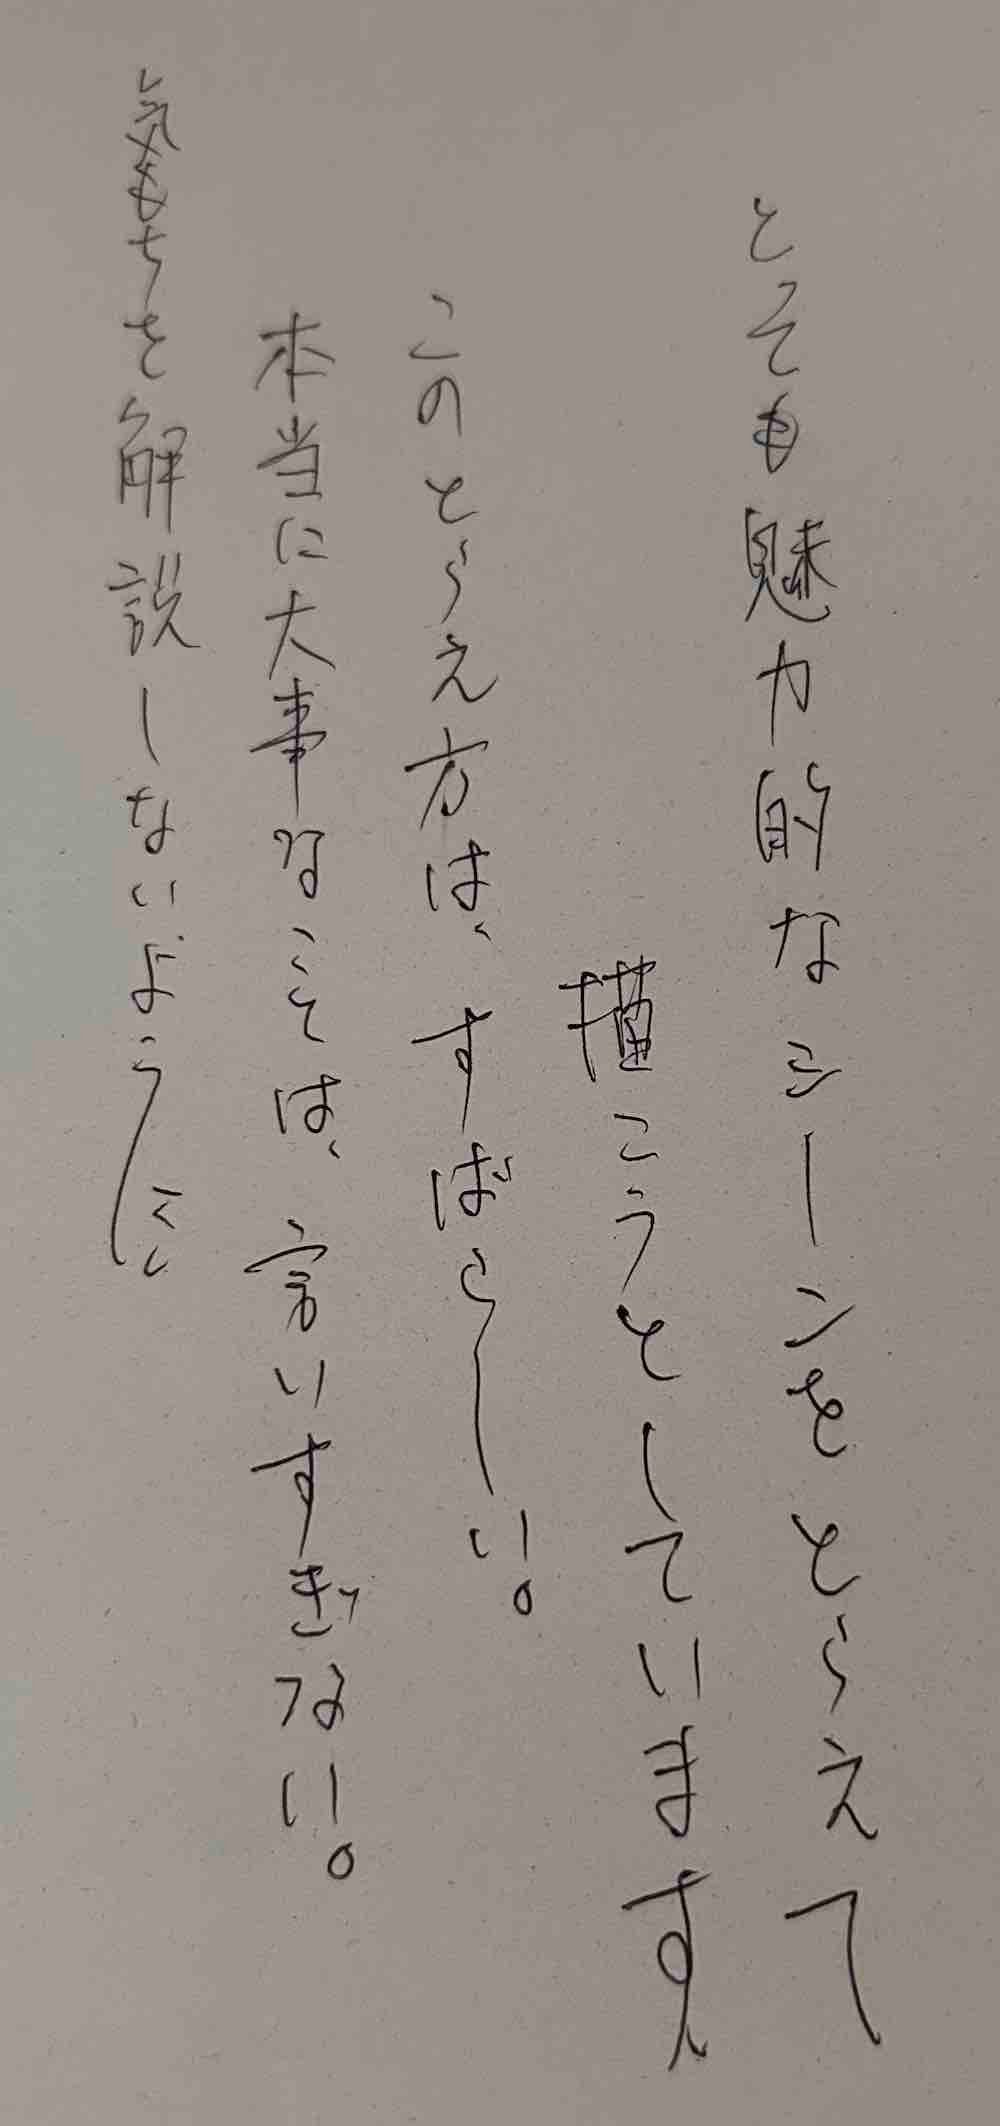 とても魅力的なシーンをとらえて
描こうとしています
このとらえ方は、すばらしい。
本当に大事なことは、言いすぎない。
気もちを解説しないように